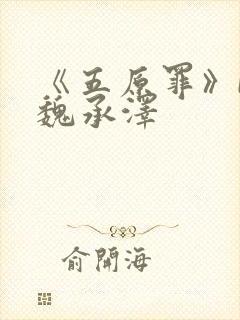 《五原罪》
魏承澤
俞開海